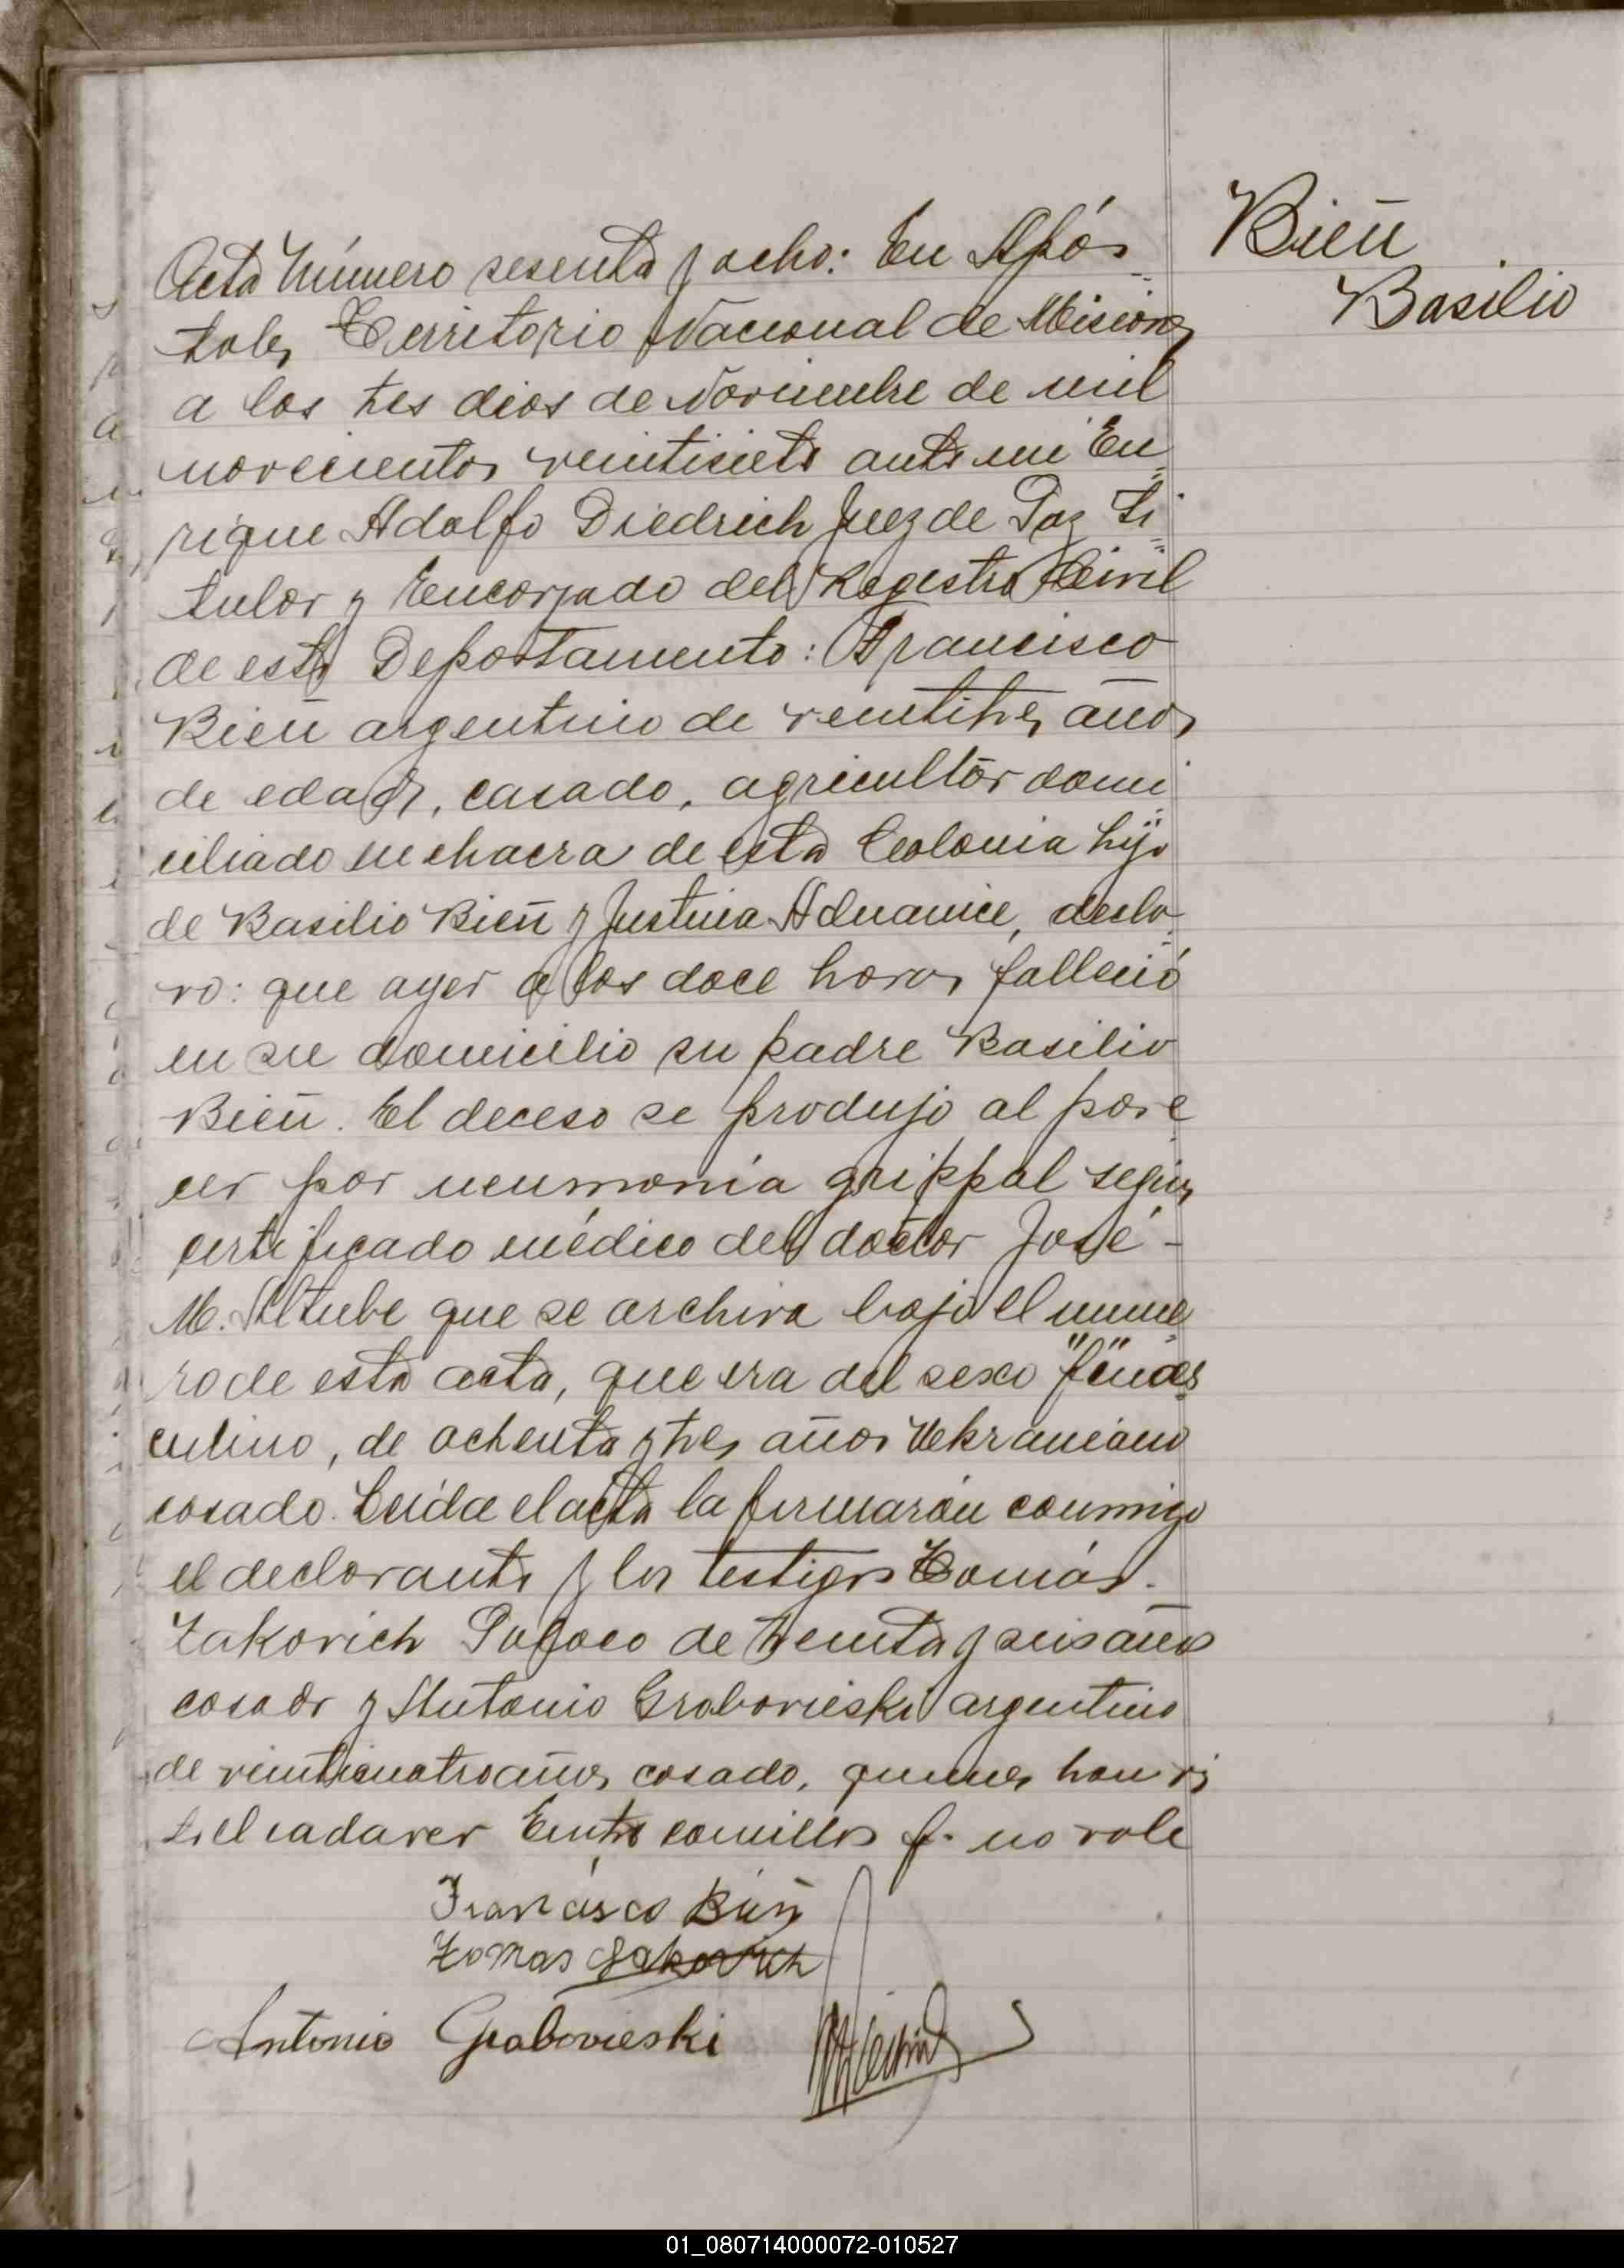 Bieñ
Basilio
Acta Número sesenta y ocho: En Após-
toles, Territorio Nacional de Misiones
a los tres dias de Noviembre de mil
novecientos veintisiete ante mi En-
rique Adolfo Diedrich Juez de Paz Ti-
tular y Encargado del Registro Civil
de este Departamento: Francisco
Bieñ argentino de veintitres años
de edad, casado, agricultor domi-
ciliado en chacra de esta Colonia hijo
de Basilio Bieñ y Justina, decla-
ro: que ayer a las doce horas falleció
en su domicilio su padre Basilio
Bieñ. El deceso se produjo al pare
cer por neumonia grippal según
certificado médico del doctor José -
M. Altube que se archiva bajo el nume-
ro de esta acta, que era del sexo "f" mas-
culino, de ochenta y tres años Uekraniano
casado. Leida el acta la firmarón conmigo
el declarante y los testigos Tomás.
Zakovich Polaco de treinta y seis años
casado y Antonio Grabovieski argentino
de veinticuatro años casado, quienes han vis
to el cadaver Entre comillas f. no vale
Francisco Bieñ
Tomas
Antonio Grabovieski
01_080714000072-010527